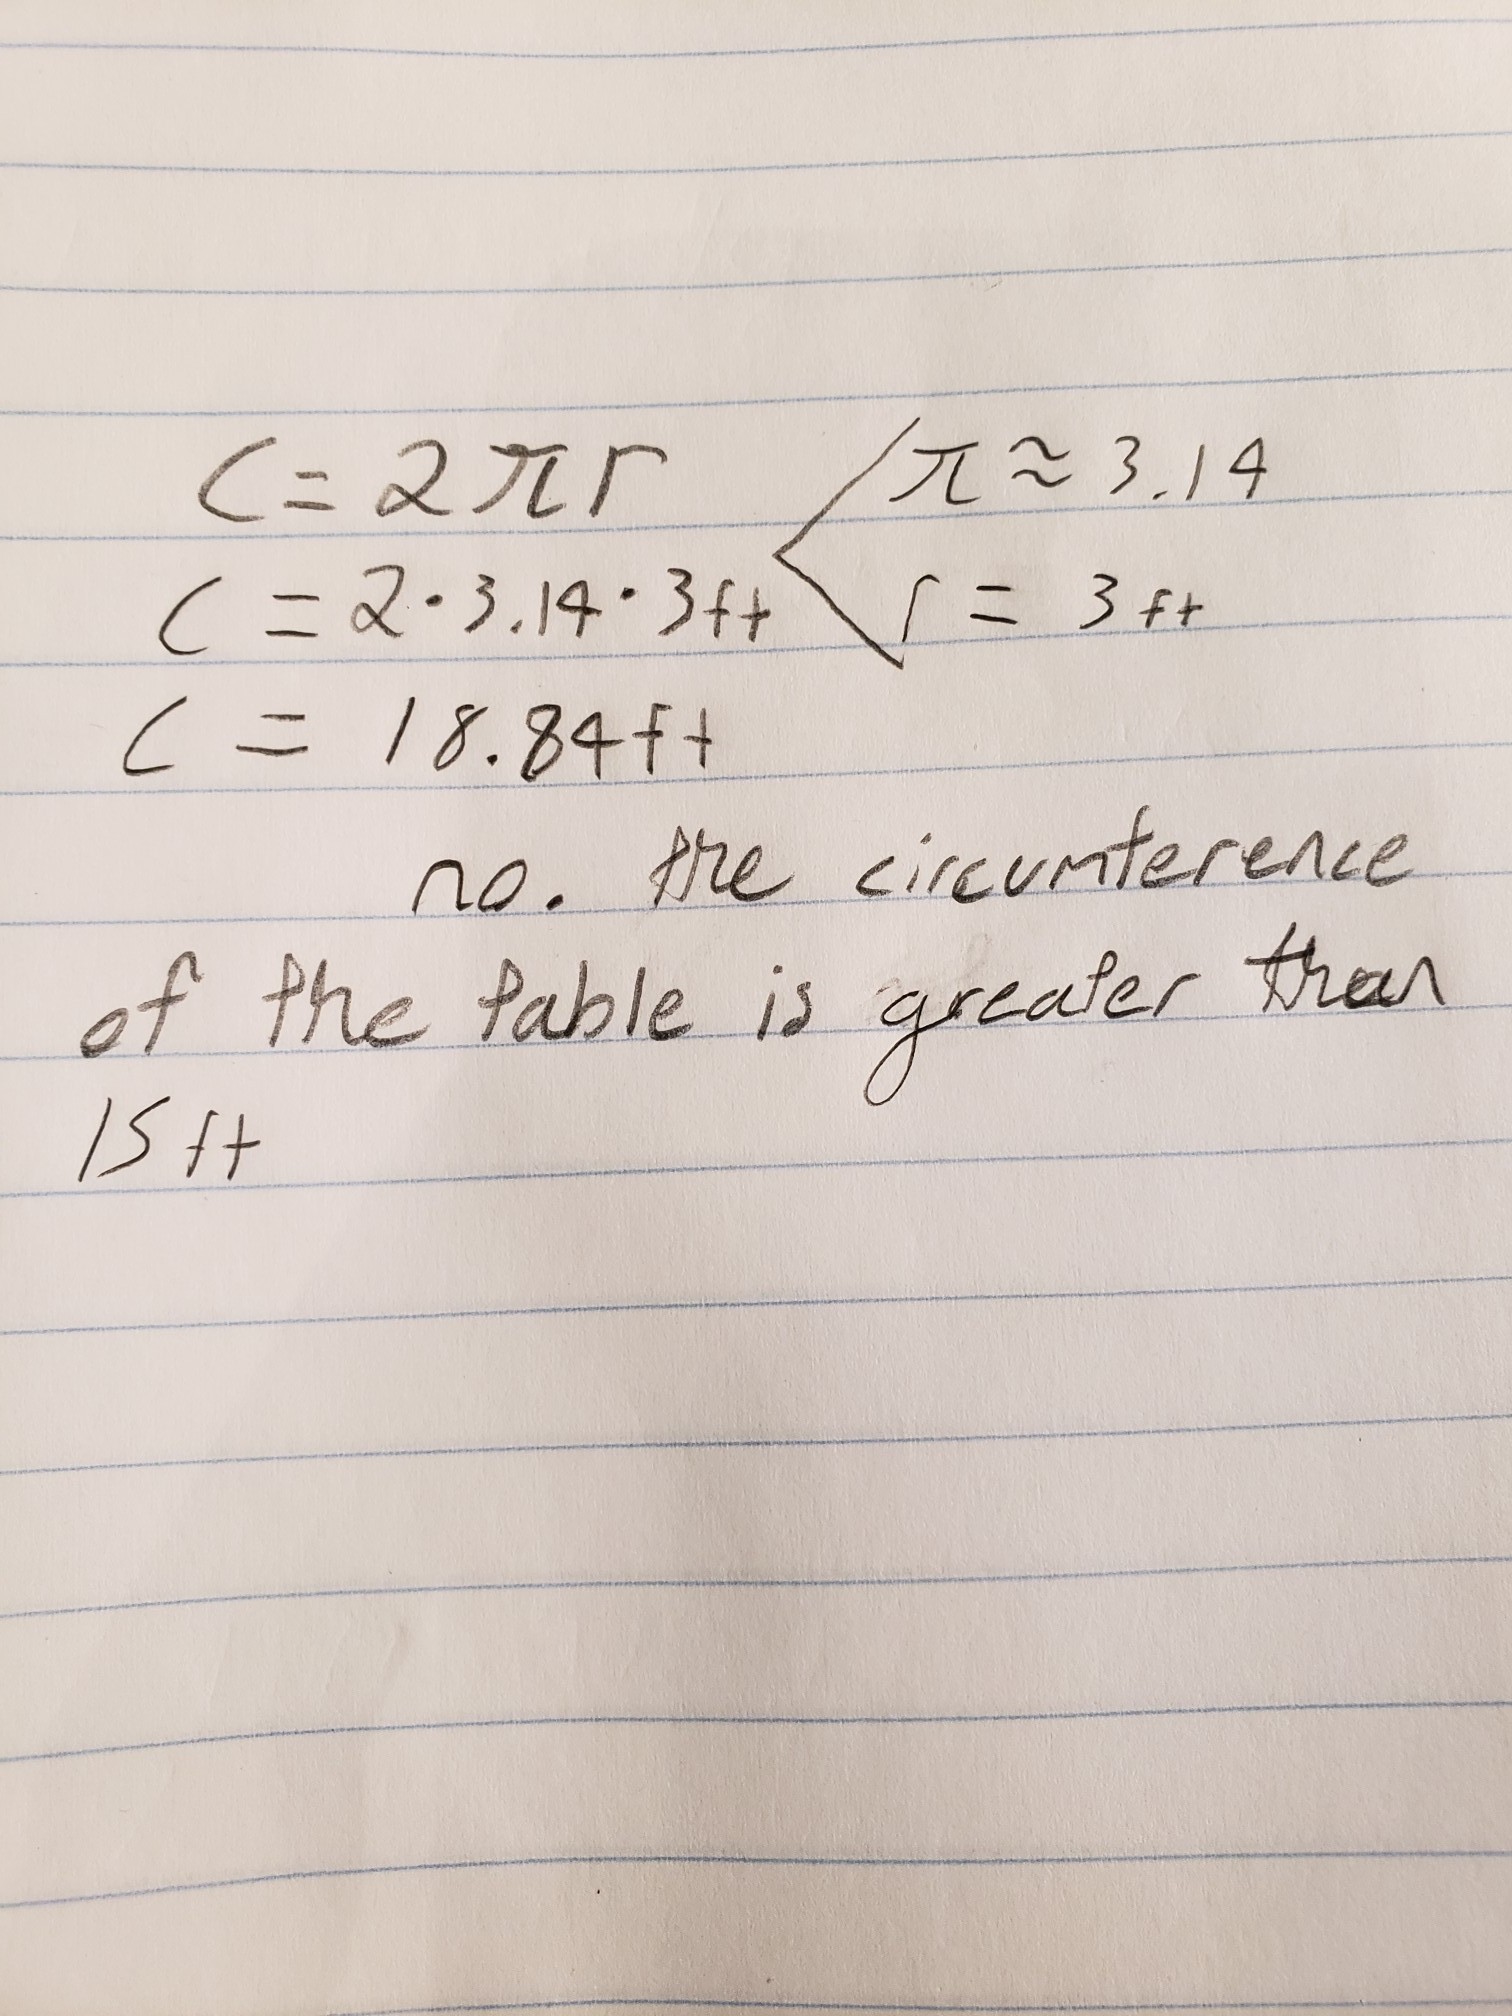 C = 2πr π ≈ 3.14
C = 2·3.14·3ft r = 3ft
C = 18.84ft
no. the circumference
of the table is greater than
15 ft